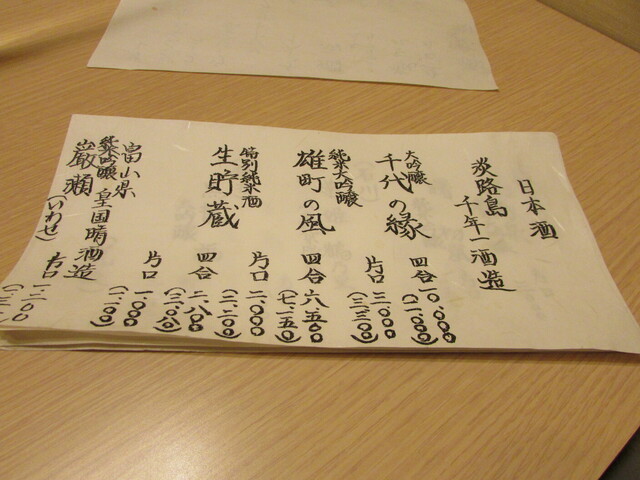 日本酒
淡路島 千年一酒造
大吟醸
千代の縁 四合 一〇、〇〇〇
(一一、〇〇〇)
片口 三、〇〇〇
(三、三〇〇)
純米大吟醸
雄町の風 四合 六、五〇〇
(七、一五〇)
片口 二、〇〇〇
(二、二〇〇)
特別純米酒
生貯蔵 四合 二、八〇〇
(三、〇八〇)
片口 一、〇〇〇
(一、一〇〇)
富山県 皇国晴酒造
純米吟醸
巌瀬(いわせ) 片口 一、二〇〇